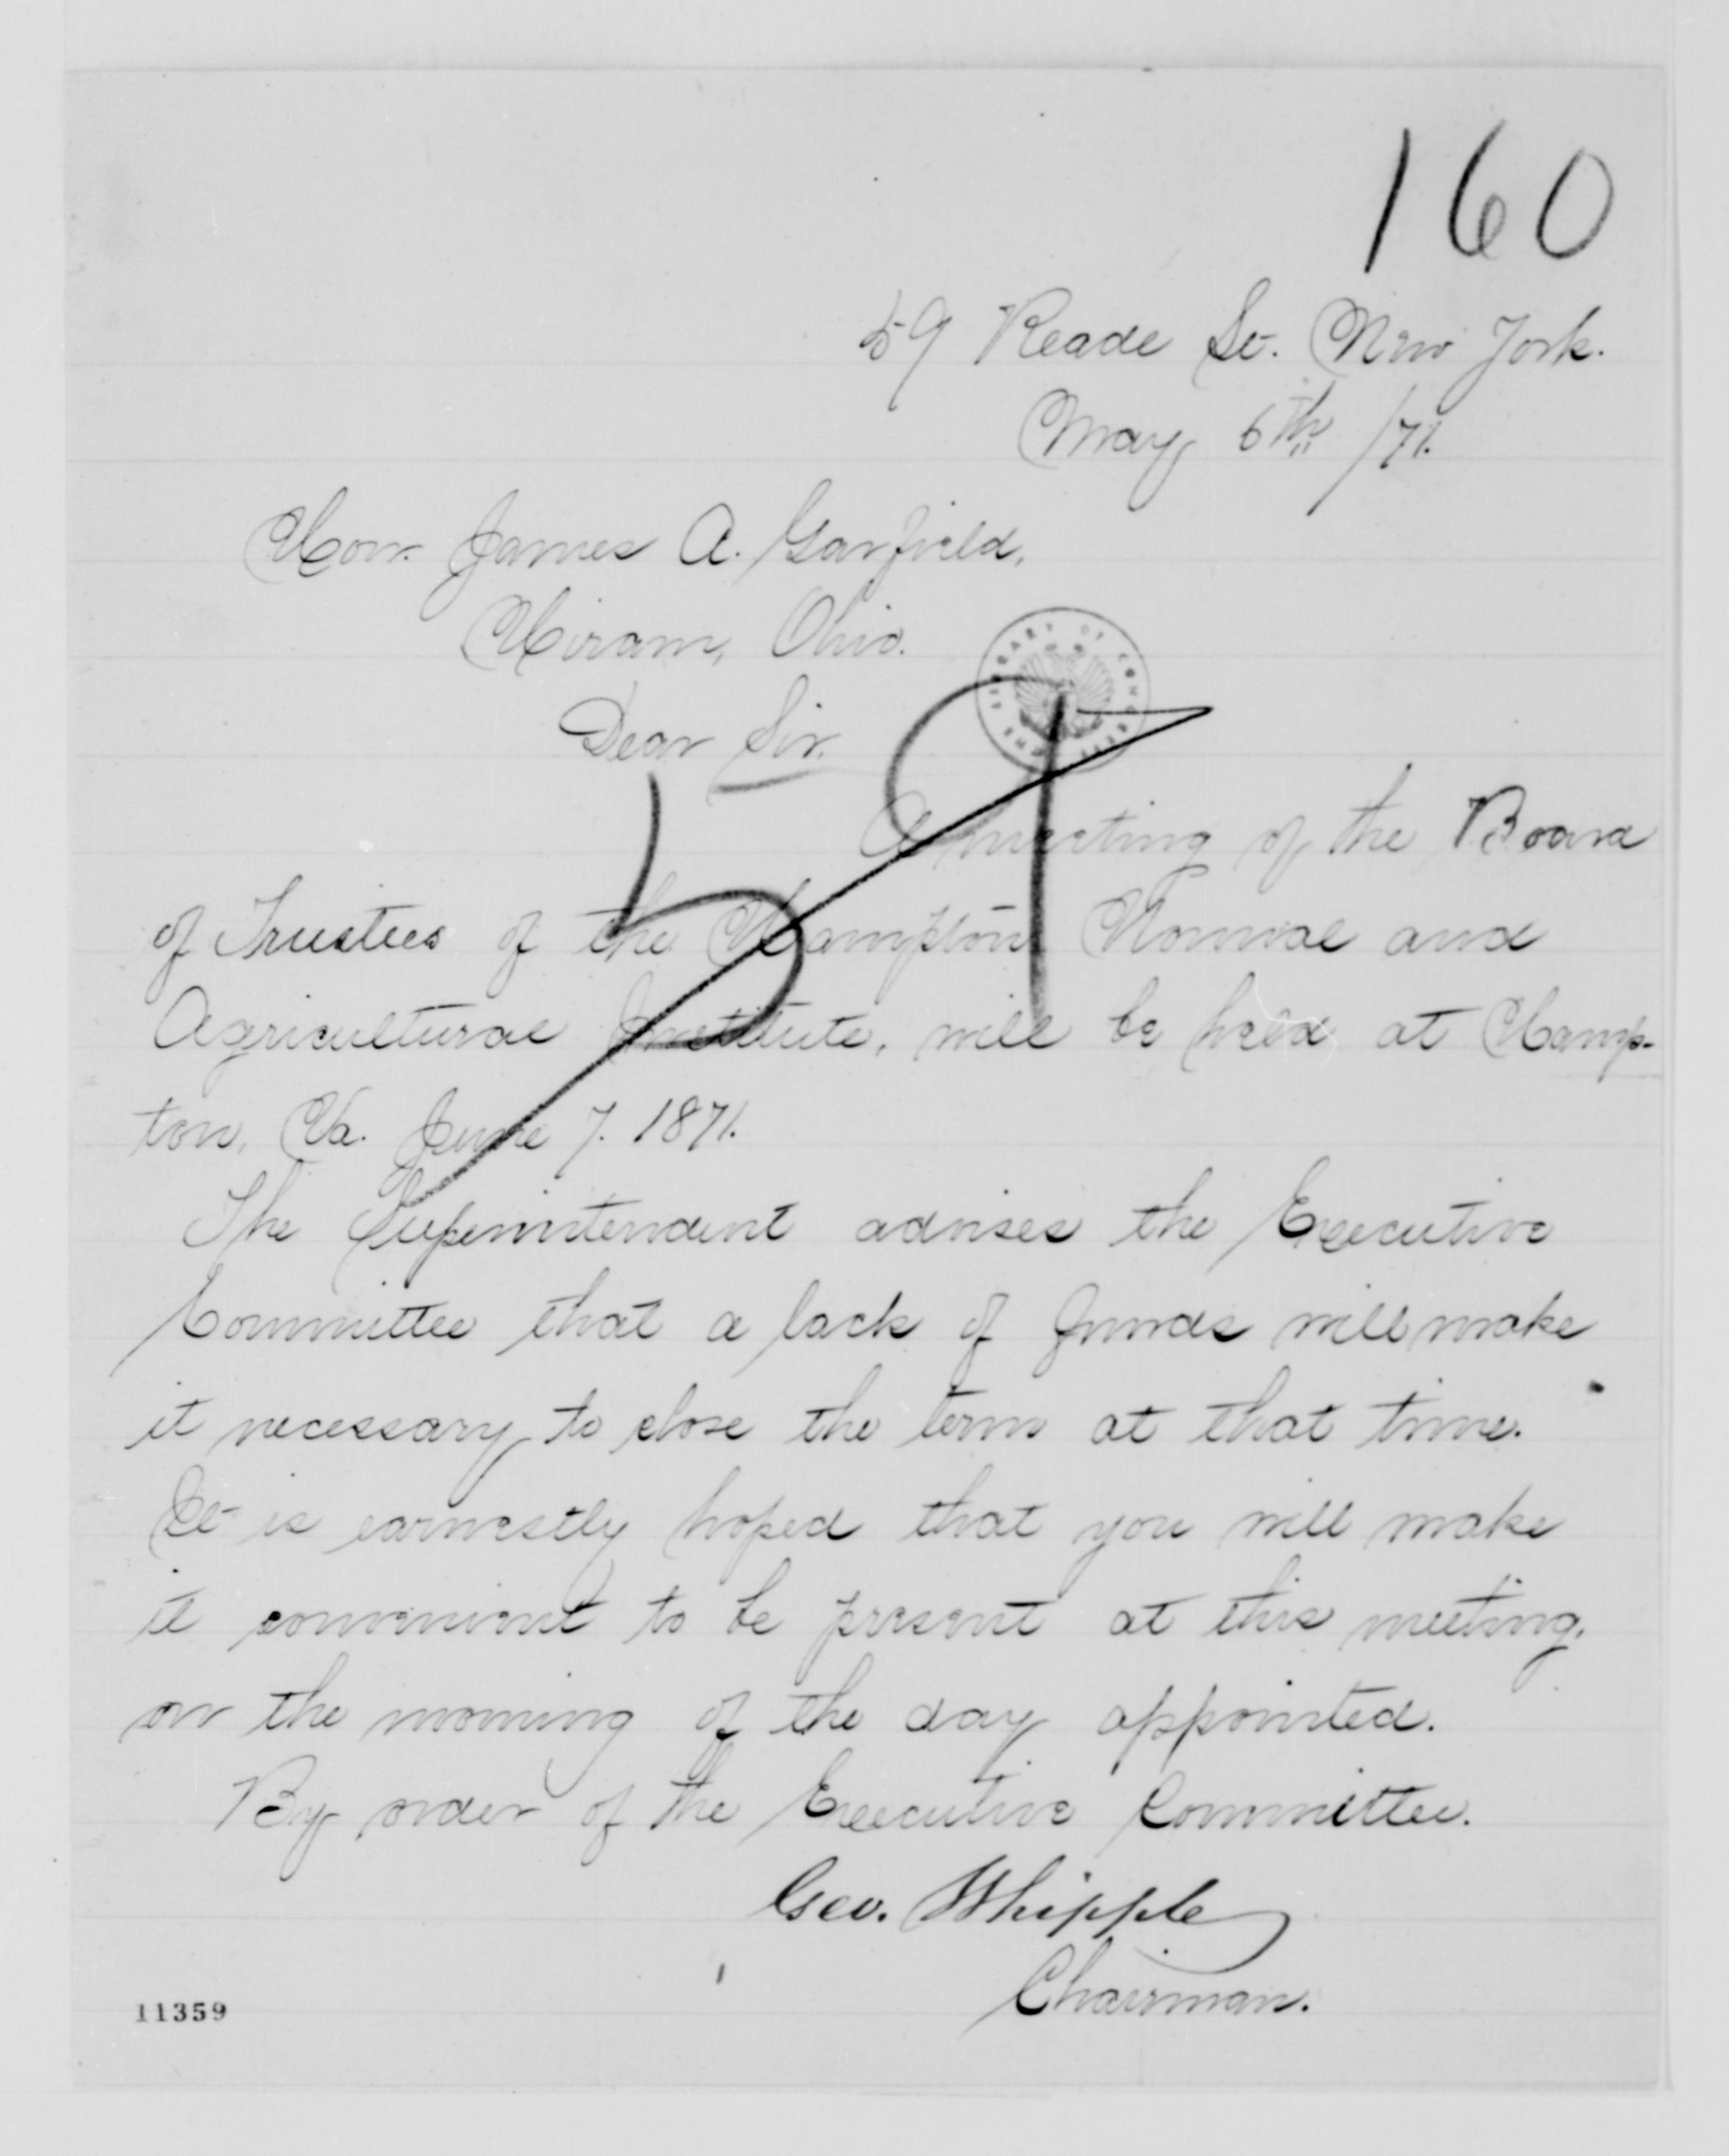 160
59 Reade St. New York.
May 6th /71.
Hon. James A. Garfield,
Hiram, Ohio.
THE LIBRARY OF CONGRESS
Dear Sir.
A meeting of the Board
of Trustees of the Hampton Normal and
Agricultural Institute, will be held at Hamp-
ton, Va. June 7. 1871.
The Superintendent advises the Executive
Committee that a lack of funds will make
it necessary to close the term at that time.
It is earnestly hoped that you will make
it convenient to be present at this meeting,
on the morning of the day appointed.
By order of the Executive Committee.
Geo. Whipple
Chairman.
11359